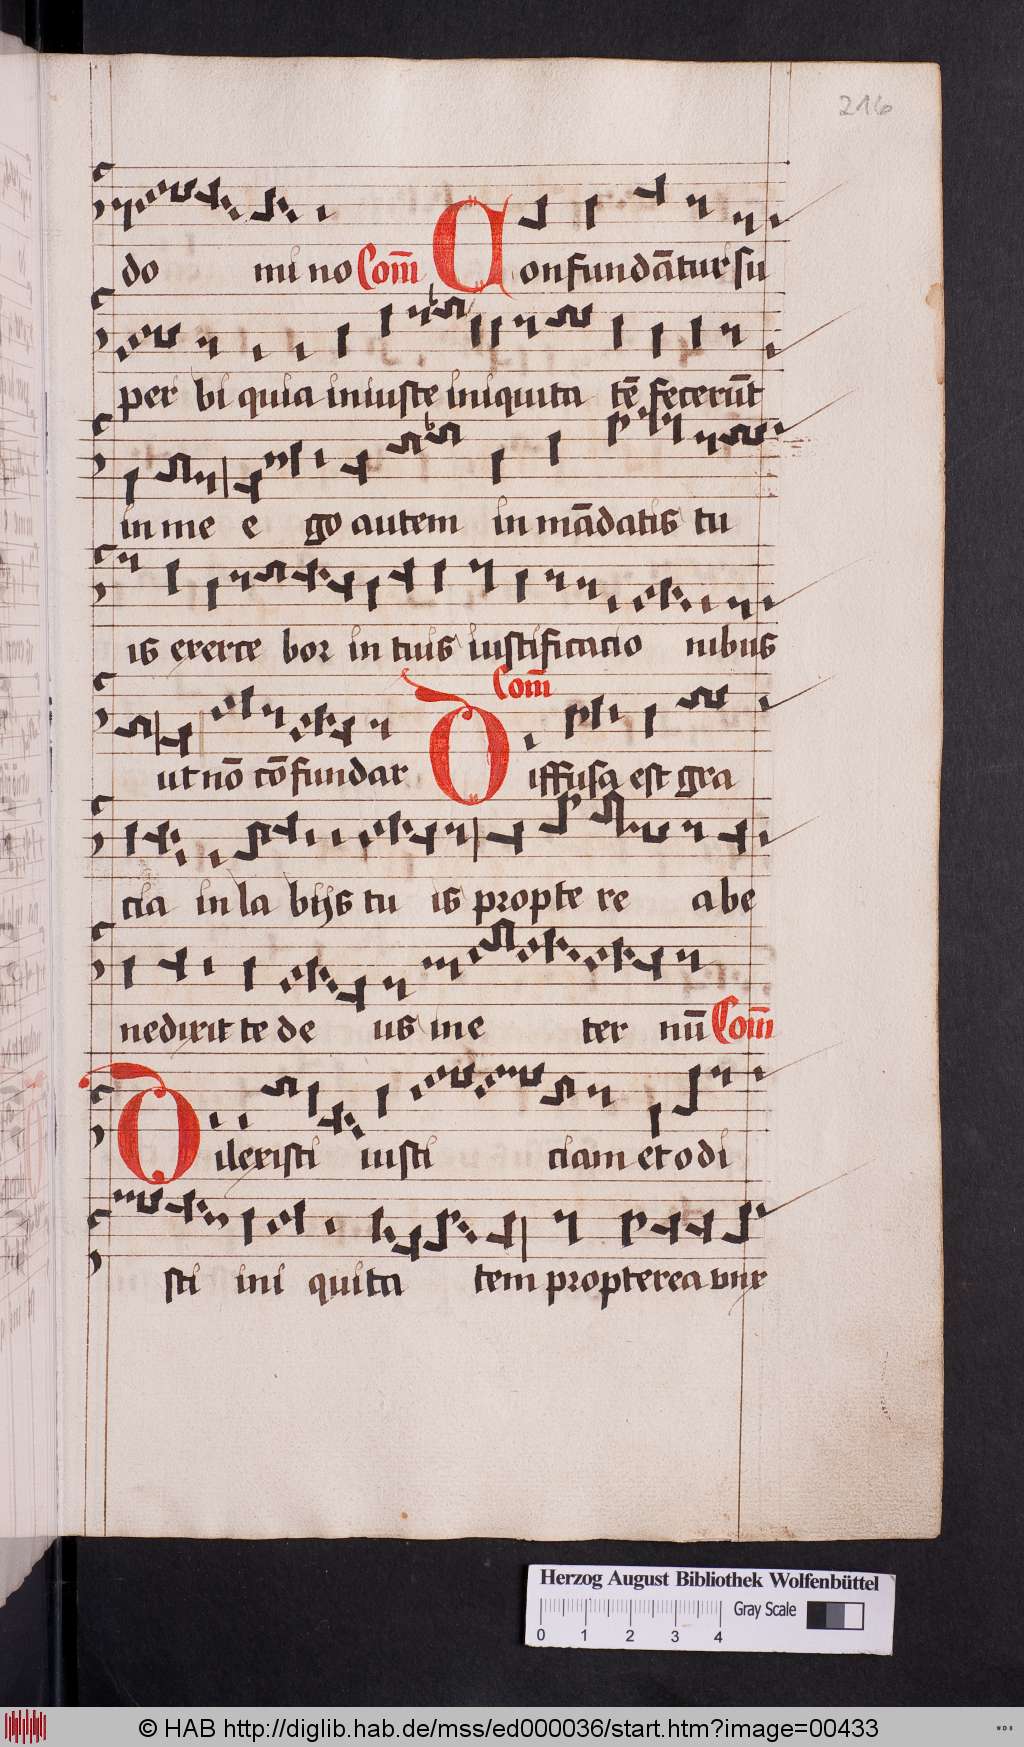 216
do mi no Com̄ Confundāturſu
per bi quia iniuſte iniquita tē fecerūt
in me e go autem in mādatis tu
is exerce bor in tuis iuſtificacio nibus
Com̄
ut nō cōfundar Diffuſa eſt gra
cia in la bijs tu is propte re a be
nedixit te de us in e ter nū Com̄
Dilexiſti iuſti ciam et odi
ſti ini quita tem propterea vnx
Herzog August Bibliothek Wolfenbüttel
0 1 2 3 4 Gray Scale
© HAB http://diglib.hab.de/mss/ed000036/start.htm?image=00433